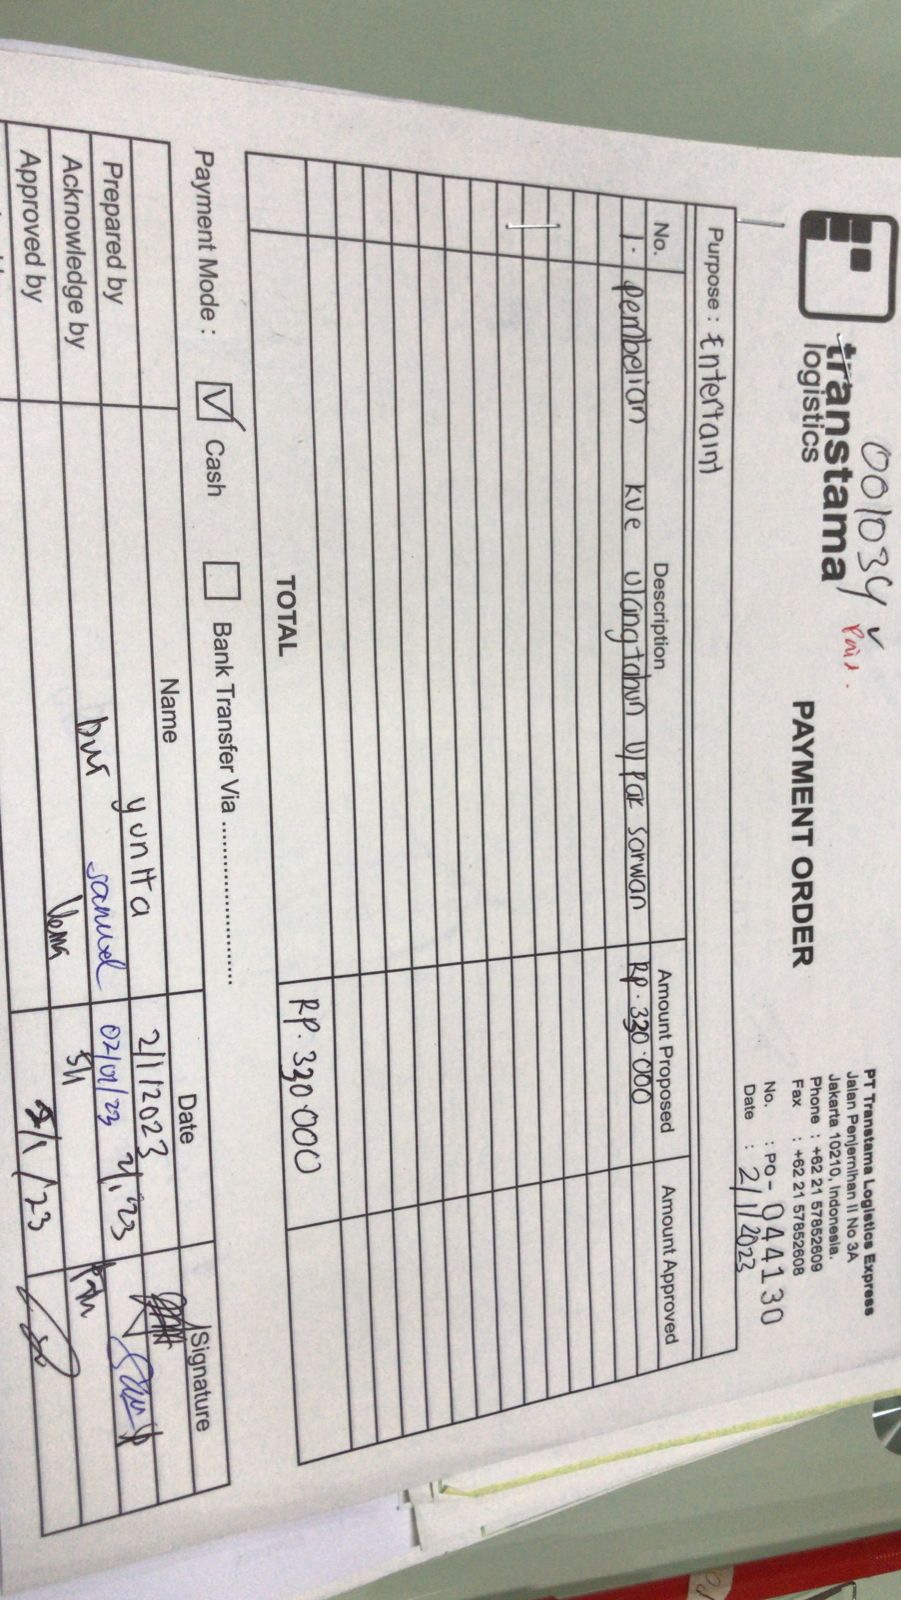 001034 ✓ Paid.
transtama
logistics
PAYMENT ORDER
PT Transtama Logistics Express
Jalan Penjernihan II No 3A
Jakarta 10210, Indonesia.
Phone : +62 21 57852609
Fax : +62 21 57852608
No. : PO-044130
Date : 2/1/2023
Purpose : Entertaint
No. Description Amount Proposed Amount Approved
1. pembelian kue ulangtahun u/ pak sarwan Rp. 320.000
TOTAL Rp. 320 000
Payment Mode : Cash Bank Transfer Via ........................
Name Date Signature
Prepared by yunita 2/1/2023
Acknowledge by samuel 02/01/23 2/1 '23
Approved by Vema 5/1
/1/23